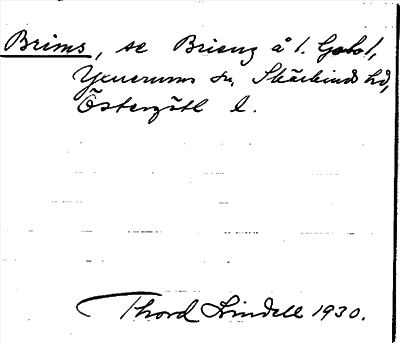 Brims, se Brienz å 1. Gobol,
Yxnerums sn, Skärkinds hd,
Östergötl l.
Thord Lindell 1930.